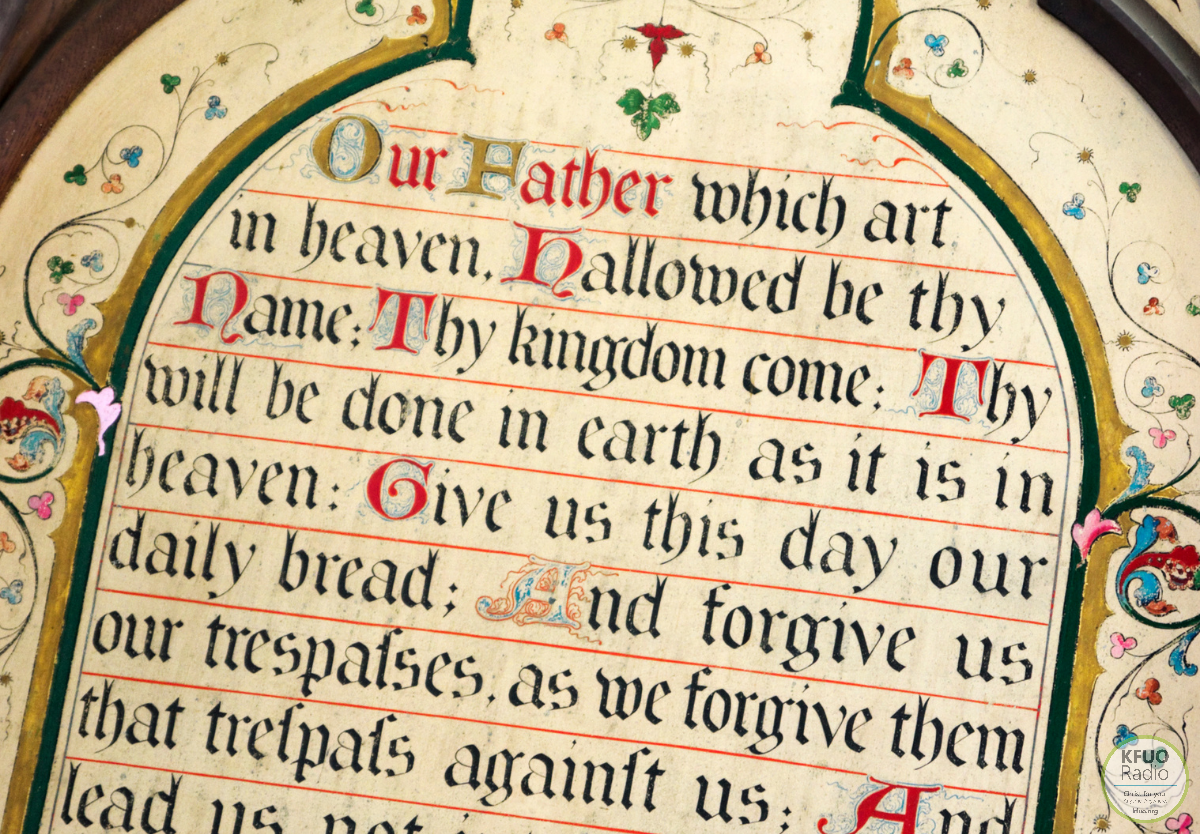 Our Father which art
in heaven, Hallowed be thy
Name; Thy kingdom come; Thy
will be done in earth as it is in
heaven: Give us this day our
daily bread; And forgive us
our trespaſses, as we forgive them
that treſpaſs againſt us; And
lead us not
KFUO
Radio
Christ for you